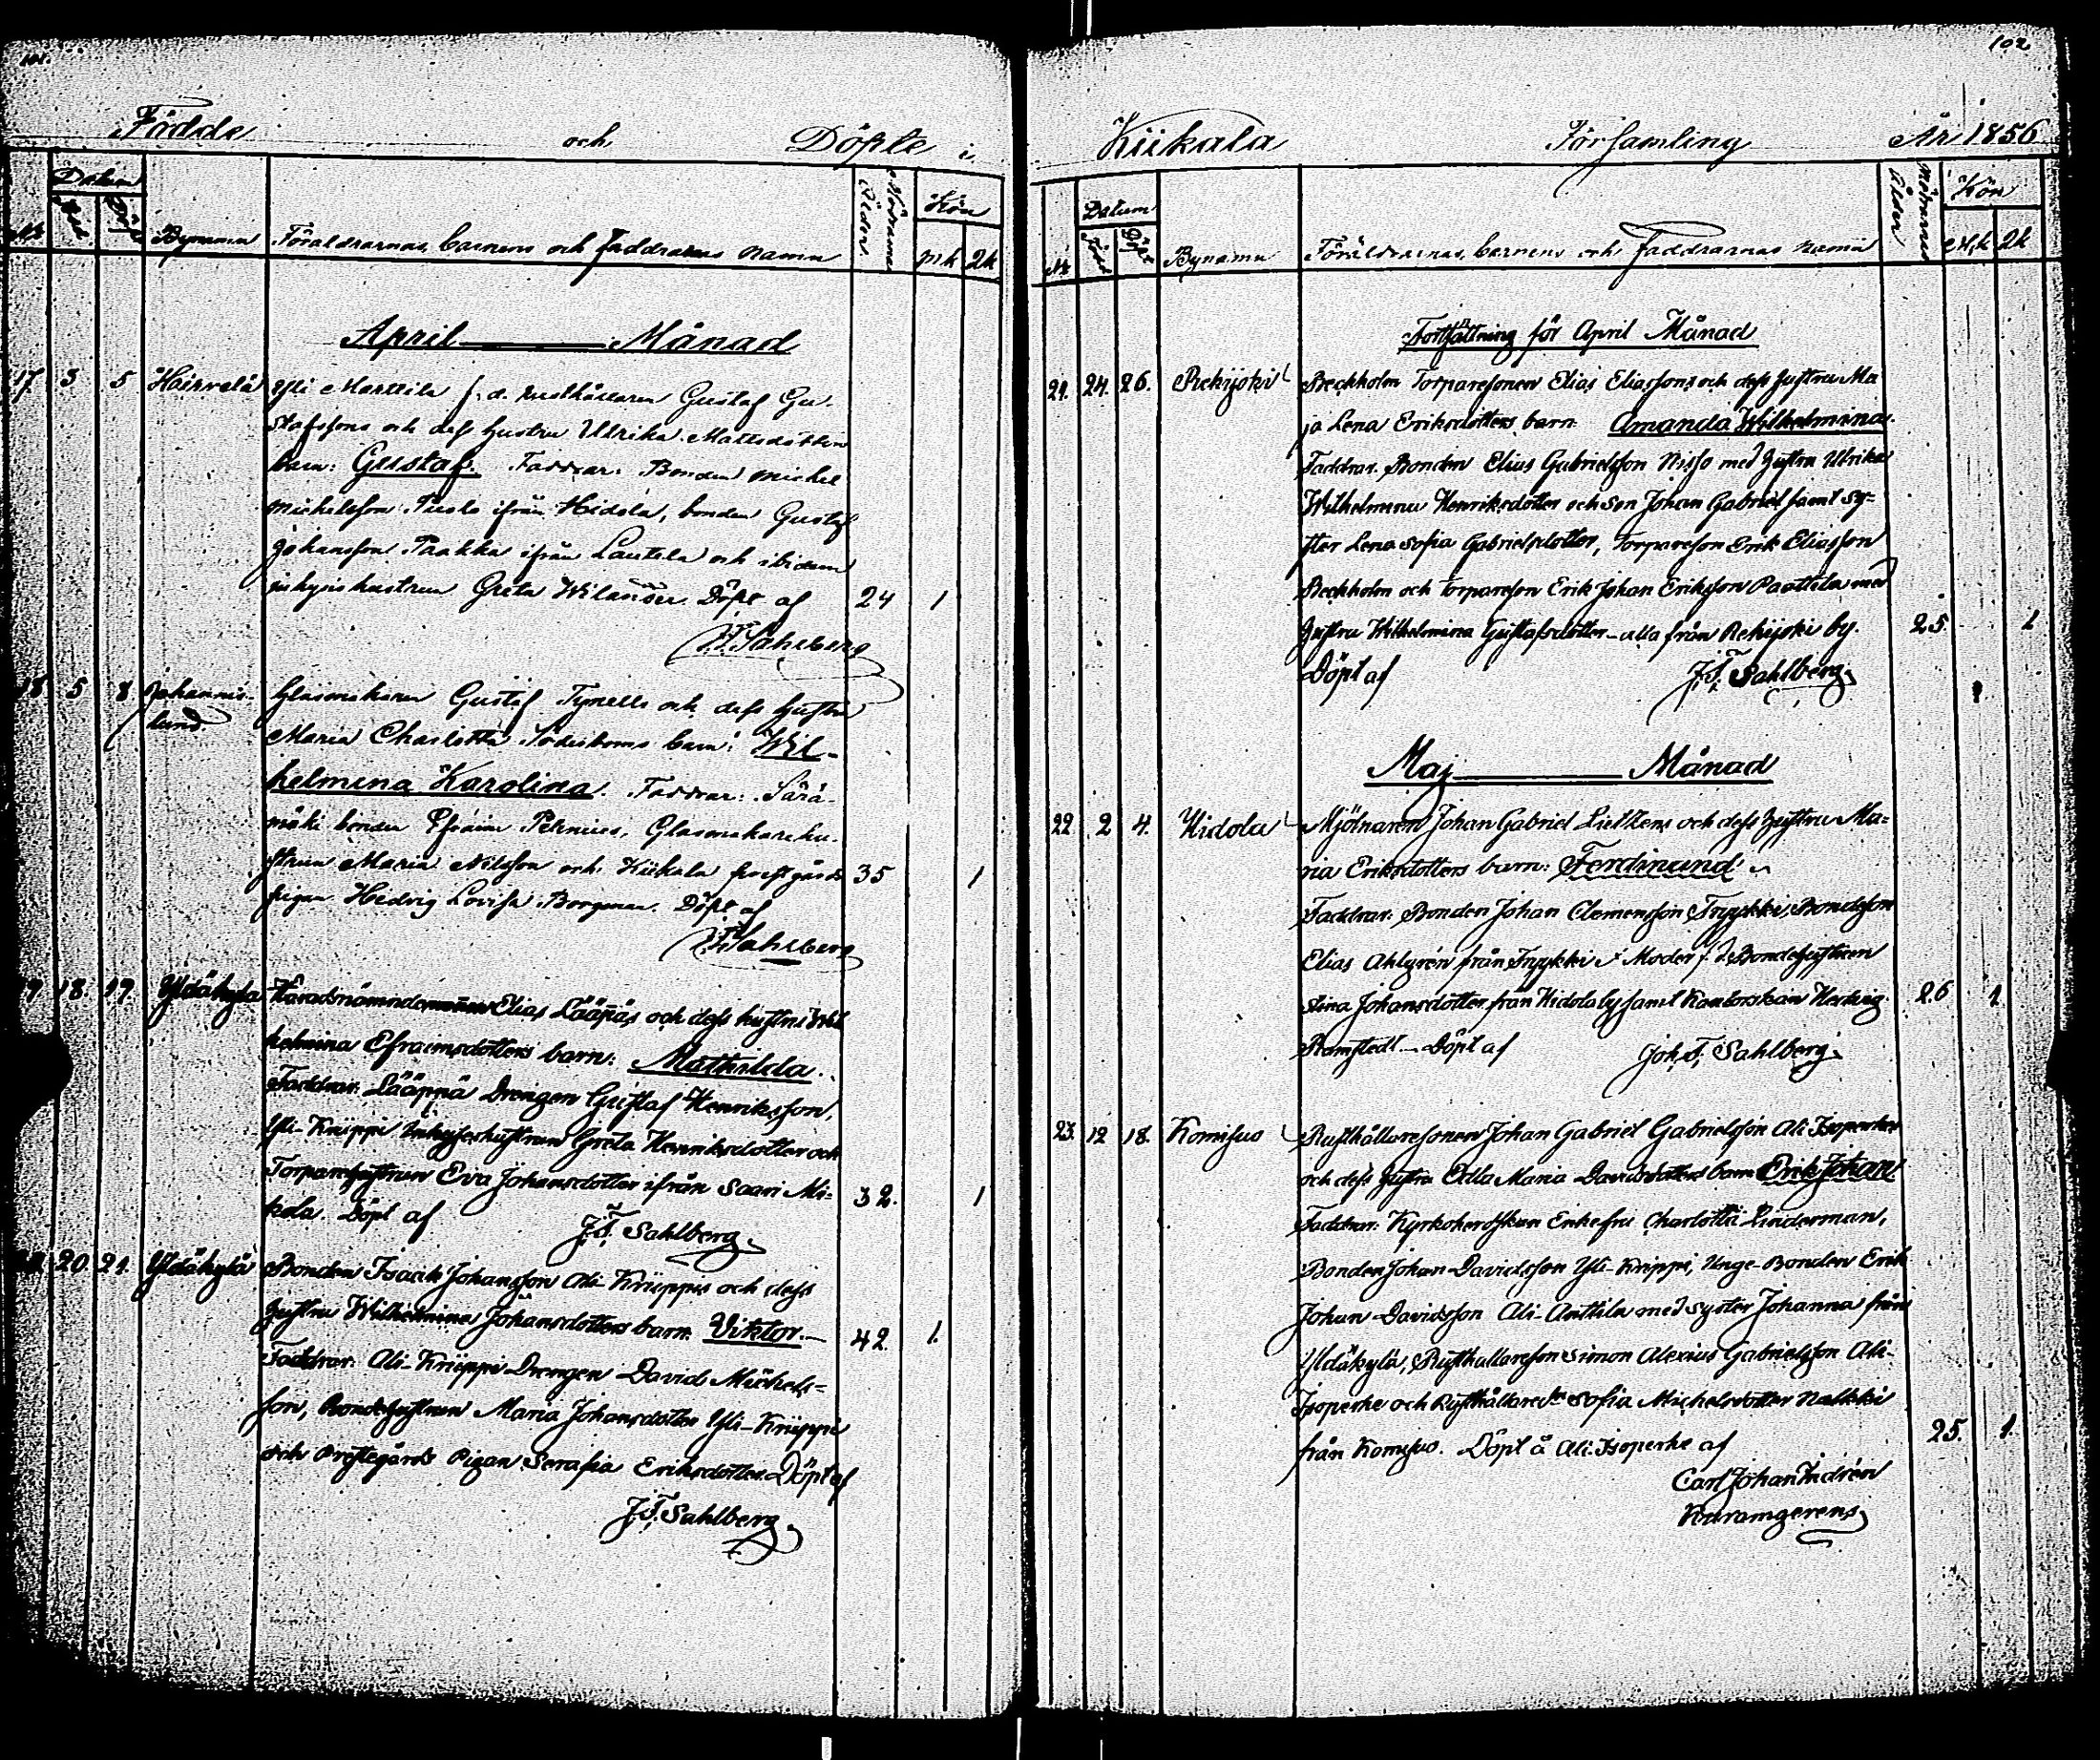 101.
Födde och Döpte i
Datum
Född Döpt
Bynamn Föräldrarnas, barnens och faddrarnas namn Mödrarnas Ålder Kön
mk 2k
April Månad
17 3 5 Hairvelä Yli Marttila f.d. rusthållaren Gustaf Gu-
stafssons och dess hustru Ulrika Mattsdotters
barn: Gustaf. Faddrar: Bonden Michel
Michelsson ifrån Hidola, bonden Gustaf
Johansson Paakka ifrån Lautela och ibidem
inhyses hustrun Greta Wilander. Döpt af 24 1
J.F. Sahlberg
18 5 8 Johannis- Glasmakaren Gustaf Tyrells och dess hustru
lund. Maria Charlotta Söderboms barn: Wil-
helmina Karolina. Faddrar: Särä-
mäki bonden Efraim Petrnius, Glasmakarehu-
strun Maria Nilsson och Kiikala prestgårds 35 1
pigan Hedvig Lovisa Borgman. Döpt af
J.F. Sahlberg
19 18. 19. Yldäkylä Häradsnämndemannen Elias Lääpäs och dess hustru Wil
helmina Efraimsdotters barn: Mathilda.
Faddrar: Lääppä Drengen Gustaf Henriksson,
Yli-Kriippi Inhyseshustrun Greta Henriksdotter och
Torparehustrun Eva Johansdotter ifrån Saari Mi- 32. 1
kola. Döpt af J.F. Sahlberg.
20. 20. 21. Yldäkylä Bonden Isaak Johansson Ali-Kriippis och dess
hustru Wilhelmina Johansdotters barn Viktor. 42. 1.
Faddrar: Ali-Kriippi Drengen David Michels-
son, Bondehustrun Maria Johansdotter Yli-Kriippi
och Prestegårds Pigan Serafia Eriksdotter. Döpt af
J.F. Sahlberg.
102
Kiikala Församling År 1856
Datum
No Född Döpt Bynamn Föräldrarnas, barnens och faddrarnas namn Mödrarnas Ålder Kön
Mk 2k
Fortsättning för April Månad
21. 24. 26. Rekijoki Beckholm Torparesonen Elias Eliassons och dess hustru Ma
ja Lena Eriksdotters barn: Amanda Wilhelmina.
Faddrar. Bonden Elias Gabrielsson Nisso med hustru Ulrika
Wilhelmina Henriksdotter och Son Johan Gabriel samt Sy-
ster Lena Sofia Gabrielsdotter, Torpareson Erik Eliasson
Beckholm och Torpareson Erik Johan Eriksson Paattila med
hustru Wilhelmina Gustafsdotter – alla från Rekijoki by. 25. 1
Döpt af J.F. Sahlberg.
Maj Månad
22 2 4. Hidola Mjölnaren Johan Gabriel Liettens och dess hustru Ma-
ria Eriksdotters barn: Ferdinand
Faddrar: Bonden Johan Clemensson Trypkki, Bondeson
Elias Ahlgrén från Trypkki, Moder f.d. Bondehustrun
Stina Johansdotter från Hidola by samt Kantorskan Hedvig 26 1.
Ramstedt – Döpt af Joh. F. Sahlberg.
23. 12 18. Komisuo Rusthållaresonen Johan Gabriel Gabrielsson Ali Isoperhes
och dess hustru Edla Maria Davidsdotters barn Erik Johan
Faddrar: Kyrkoherdskan Enkefru Charlotta Linderman,
Bonden Johan Davidsson Yli-Kriippi, Unge-Bonden Erik
Johan Davidsson Ali-Anttila med syster Johanna från
Yldäkylä, Rusthållareson Simon Alexius Gabrielsson Ali-
Isoperhe och Rusthållare Sofia Michelsdotter Nalkki
från Komisuo. Döpt å Ali-Isoperhe af 25. 1.
Carl Johan Indrén